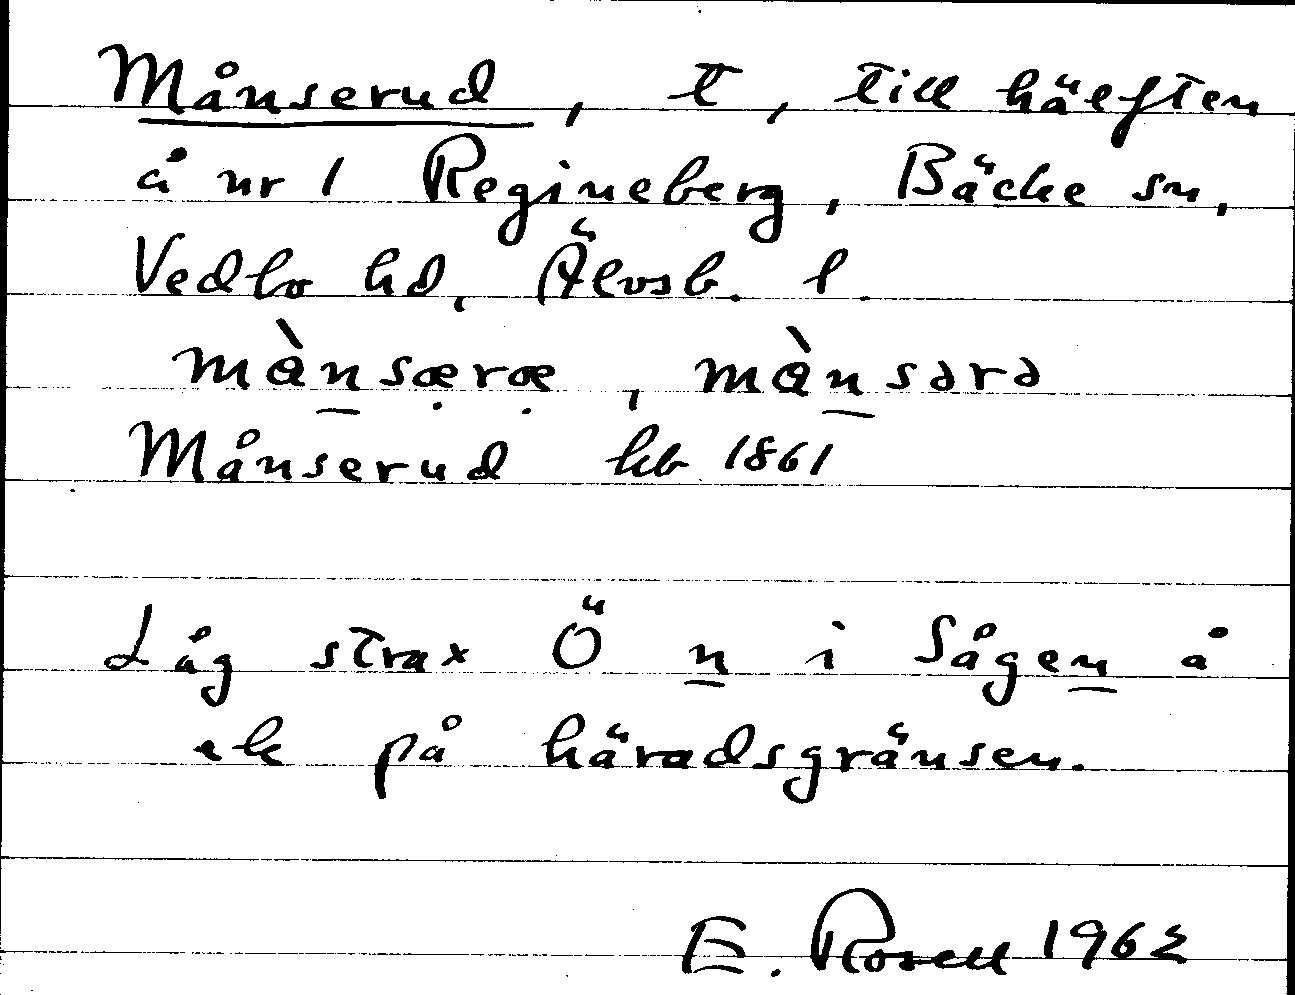 Månserud, t, till hälften
å nr 1 Regineberg, Bäcke sn,
Vedbo hd, Älvsb. l.
màn̲sæ̣ræ̣, màn̲sərə
Månserud kb 1861
Låg strax Ö n̲ i Sågen̲ å
ek på häradsgränsen.
E. Rosell 1962